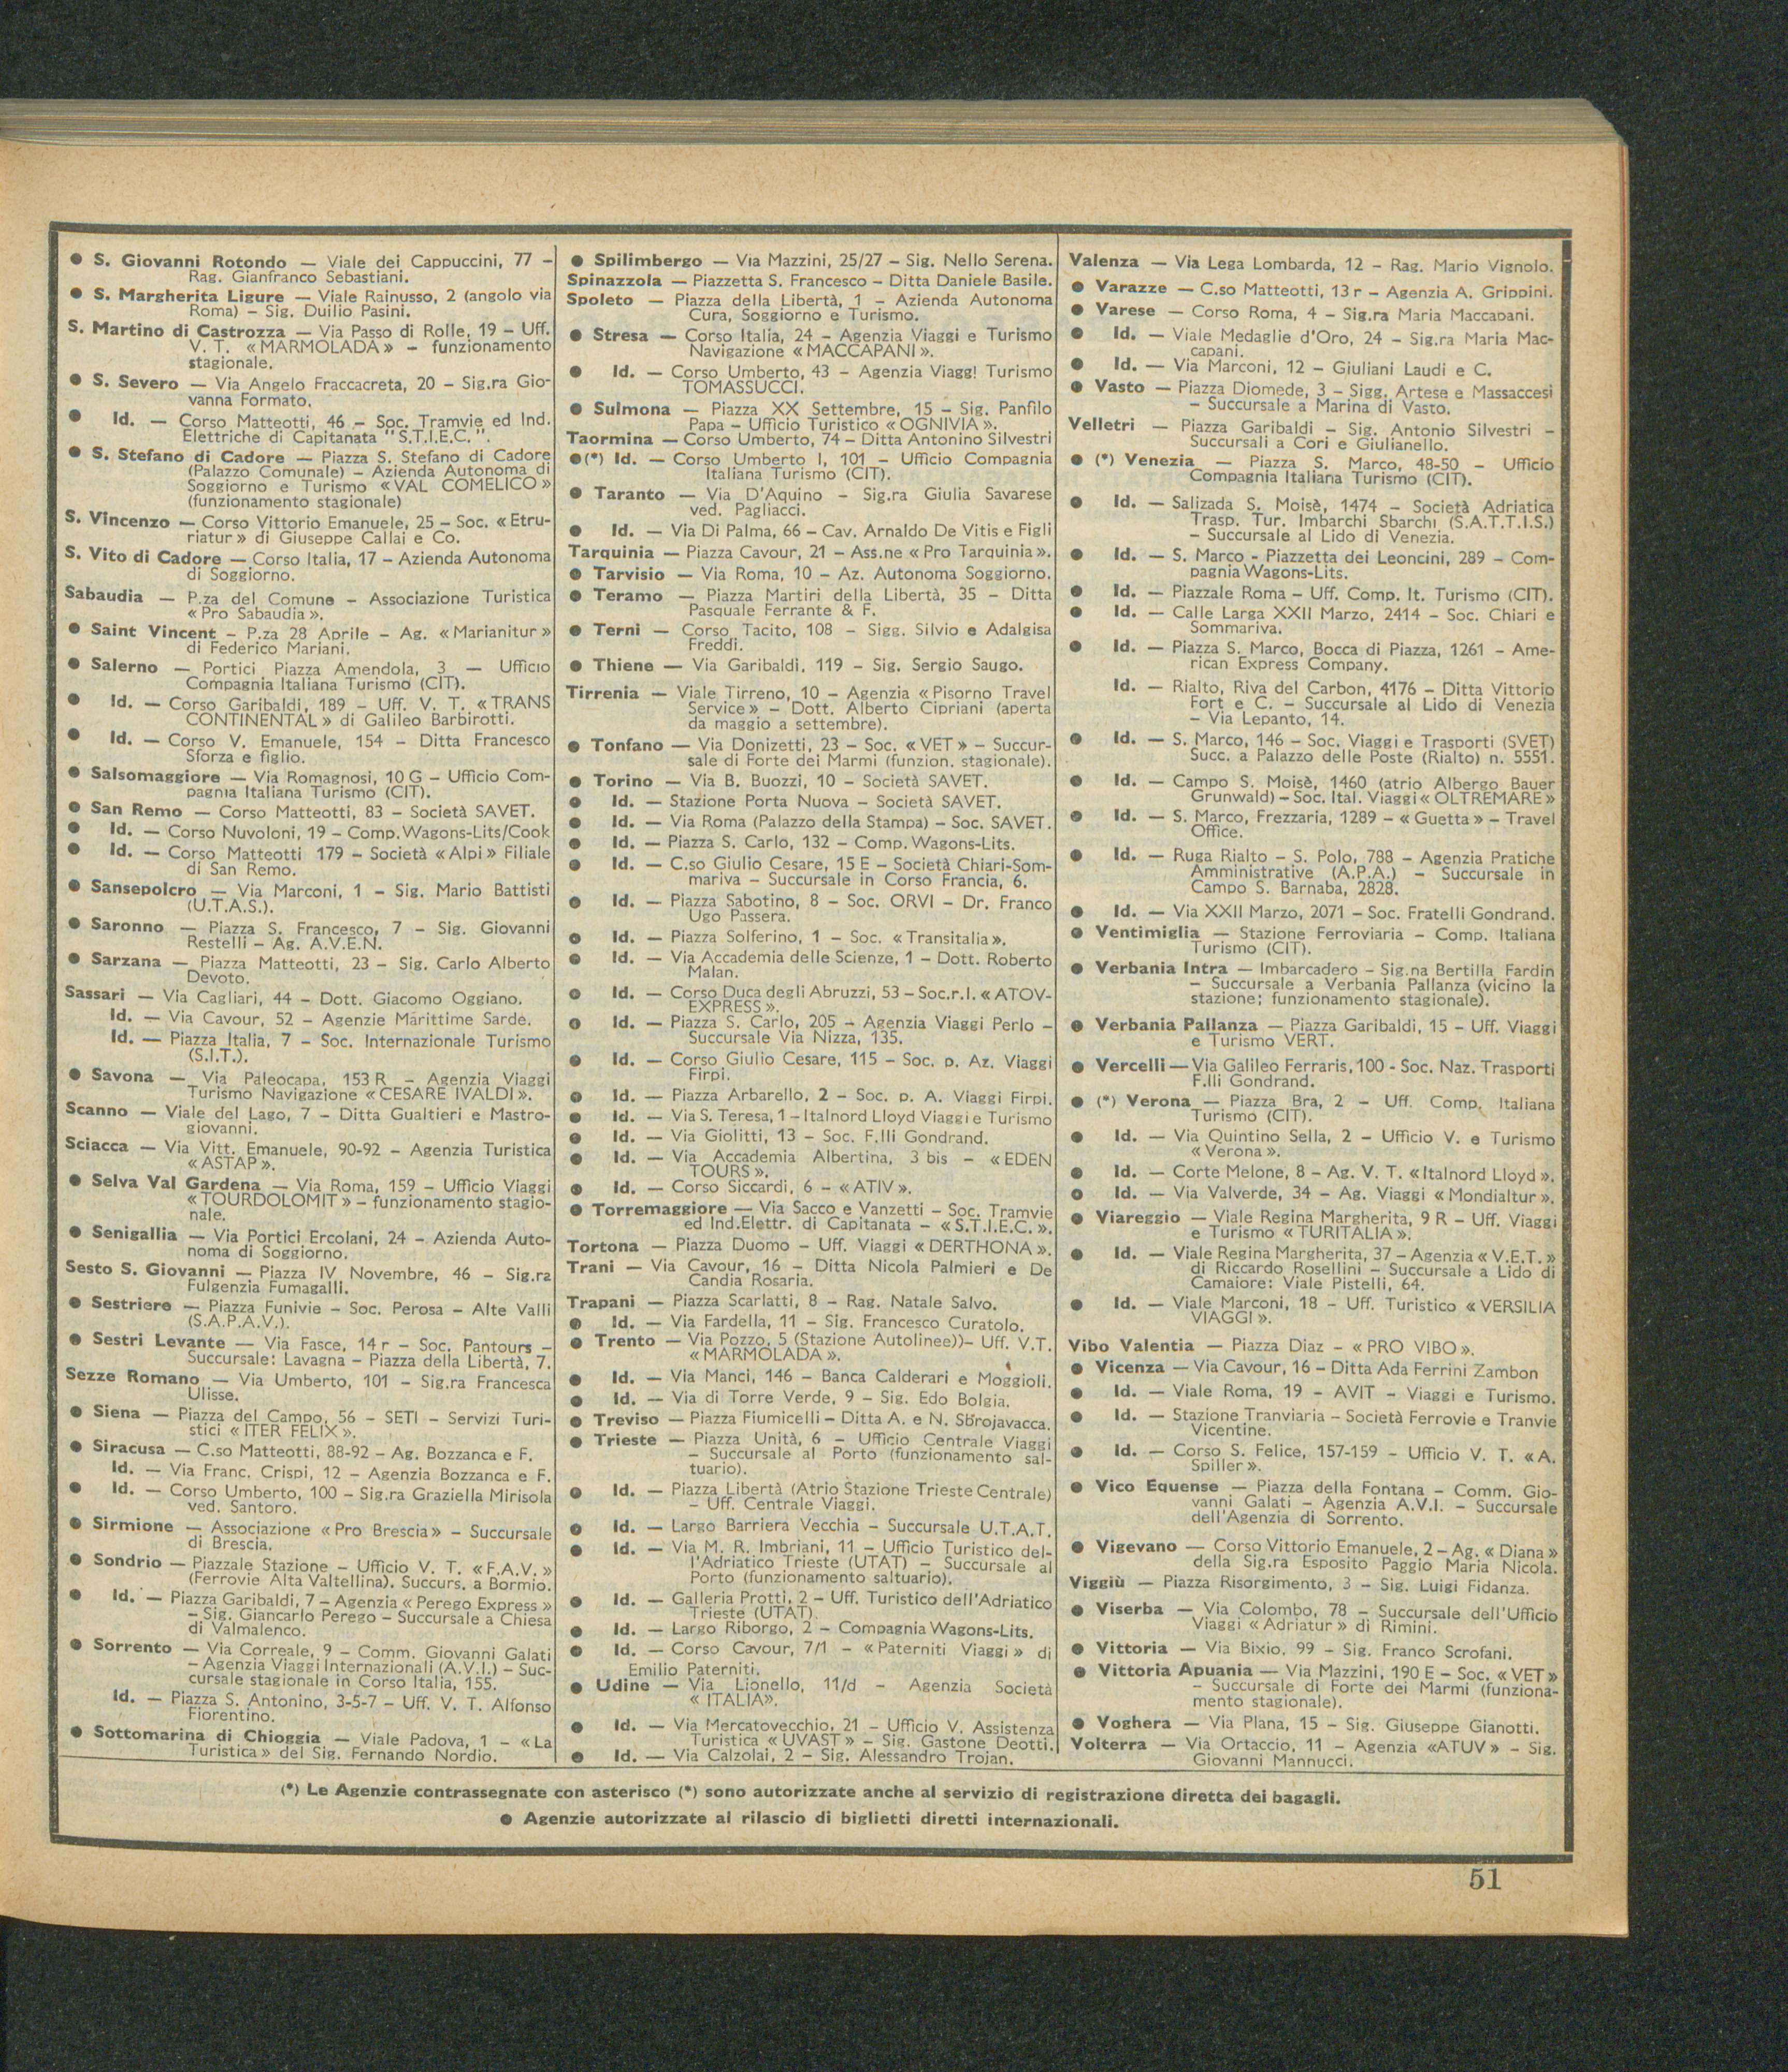 ● S. Giovanni Rotondo — Viale dei Cappuccini, 77 –
Rag. Gianfranco Sebastiani.
● S. Margherita Ligure — Viale Rainusso, 2 (angolo via
Roma) – Sig. Duilio Pasini.
S. Martino di Castrozza — Via Passo di Rolle, 19 – Uff.
V. T. «MARMOLADA» – funzionamento
stagionale.
● S. Severo — Via Angelo Fraccacreta, 20 – Sig.ra Gio-
vanna Formato.
● Id. — Corso Matteotti, 46 – Soc. Tramvie ed Ind.
Elettriche di Capitanata "S.T.I.E.C.".
● S. Stefano di Cadore — Piazza S. Stefano di Cadore
(Palazzo Comunale) – Azienda Autonoma di
Soggiorno e Turismo «VAL COMELICO»
(funzionamento stagionale)
S. Vincenzo — Corso Vittorio Emanuele, 25 – Soc. «Etru-
riatur» di Giuseppe Callai e Co.
S. Vito di Cadore — Corso Italia, 17 – Azienda Autonoma
di Soggiorno.
Sabaudia — P.za del Comune – Associazione Turistica
«Pro Sabaudia».
● Saint Vincent – P.za 28 Aprile – Ag. «Marianitur»
di Federico Mariani.
● Salerno — Portici Piazza Amendola, 3 — Ufficio
Compagnia Italiana Turismo (CIT).
● Id. — Corso Garibaldi, 189 – Uff. V. T. «TRANS
CONTINENTAL» di Galileo Barbirotti.
● Id. — Corso V. Emanuele, 154 – Ditta Francesco
Sforza e figlio.
● Salsomaggiore — Via Romagnosi, 10 G – Ufficio Com-
pagnia Italiana Turismo (CIT).
● San Remo — Corso Matteotti, 83 – Società SAVET.
● Id. — Corso Nuvoloni, 19 – Comp. Wagons-Lits/Cook
● Id. — Corso Matteotti 179 – Società «Alpi» Filiale
di San Remo.
● Sansepolcro — Via Marconi, 1 – Sig. Mario Battisti
(U.T.A.S.).
● Saronno — Piazza S. Francesco, 7 – Sig. Giovanni
Restelli – Ag. A.V.E.N.
● Sarzana — Piazza Matteotti, 23 – Sig. Carlo Alberto
Devoto.
Sassari — Via Cagliari, 44 – Dott. Giacomo Oggiano.
Id. — Via Cavour, 52 – Agenzie Marittime Sarde.
Id. — Piazza Italia, 7 – Soc. Internazionale Turismo
(S.I.T.).
● Savona — Via Paleocapa, 153 R – Agenzia Viaggi
Turismo Navigazione «CESARE IVALDI».
Scanno — Viale del Lago, 7 – Ditta Gualtieri e Mastro-
giovanni.
Sciacca — Via Vitt. Emanuele, 90-92 – Agenzia Turistica
«ASTAP».
● Selva Val Gardena — Via Roma, 159 – Ufficio Viaggi
«TOURDOLOMIT» – funzionamento stagio-
nale.
● Senigallia — Via Portici Ercolani, 24 – Azienda Auto-
noma di Soggiorno.
Sesto S. Giovanni — Piazza IV Novembre, 46 – Sig.ra
Fulgenzia Fumagalli.
● Sestriere — Piazza Funivie – Soc. Perosa – Alte Valli
(S.A.P.A.V.).
● Sestri Levante — Via Fasce, 14 r – Soc. Pantours –
Succursale: Lavagna – Piazza della Libertà, 7.
Sezze Romano — Via Umberto, 101 – Sig.ra Francesca
Ulisse.
● Siena — Piazza del Campo, 56 – SETI – Servizi Turi-
stici «ITER FELIX».
● Siracusa — C.so Matteotti, 88-92 – Ag. Bozzanca e F.
Id. — Via Franc. Crispi, 12 – Agenzia Bozzanca e F.
● Id. — Corso Umberto, 100 – Sig.ra Graziella Mirisola
ved. Santoro.
● Sirmione — Associazione «Pro Brescia» – Succursale
di Brescia.
● Sondrio — Piazzale Stazione – Ufficio V. T. «F.A.V.»
(Ferrovie Alta Valtellina). Succurs. a Bormio.
● Id. — Piazza Garibaldi, 7 – Agenzia «Perego Express»
– Sig. Giancarlo Perego – Succursale a Chiesa
di Valmalenco.
● Sorrento — Via Correale, 9 – Comm. Giovanni Galati
– Agenzia Viaggi Internazionali (A.V.I.) – Suc-
cursale stagionale in Corso Italia, 155.
Id. — Piazza S. Antonino, 3-5-7 – Uff. V. T. Alfonso
Fiorentino.
● Sottomarina di Chioggia — Viale Padova, 1 – «La
Turistica» del Sig. Fernando Nordio.
● Spilimbergo — Via Mazzini, 25/27 – Sig. Nello Serena.
Spinazzola — Piazzetta S. Francesco – Ditta Daniele Basile.
Spoleto — Piazza della Libertà, 1 – Azienda Autonoma
Cura, Soggiorno e Turismo.
● Stresa — Corso Italia, 24 – Agenzia Viaggi e Turismo
Navigazione «MACCAPANI».
● Id. — Corso Umberto, 43 – Agenzia Viagg! Turismo
TOMASSUCCI.
● Sulmona — Piazza XX Settembre, 15 – Sig. Panfilo
Papa – Ufficio Turistico «OGNIVIA».
Taormina — Corso Umberto, 74 – Ditta Antonino Silvestri
●(*) Id. — Corso Umberto I, 101 – Ufficio Compagnia
Italiana Turismo (CIT).
● Taranto — Via D'Aquino – Sig.ra Giulia Savarese
ved. Pagliacci.
● Id. — Via Di Palma, 66 – Cav. Arnaldo De Vitis e Figli
Tarquinia — Piazza Cavour, 21 – Ass.ne «Pro Tarquinia».
● Tarvisio — Via Roma, 10 – Az. Autonoma Soggiorno.
● Teramo — Piazza Martiri della Libertà, 35 – Ditta
Pasquale Ferrante & F.
● Terni — Corso Tacito, 108 – Sigg. Silvio e Adalgisa
Freddi.
● Thiene — Via Garibaldi, 119 – Sig. Sergio Saugo.
Tirrenia — Viale Tirreno, 10 – Agenzia «Pisorno Travel
Service» – Dott. Alberto Cipriani (aperta
da maggio a settembre).
● Tonfano — Via Donizetti, 23 – Soc. «VET» – Succur-
sale di Forte dei Marmi (funzion. stagionale).
● Torino — Via B. Buozzi, 10 – Società SAVET.
● Id. — Stazione Porta Nuova – Società SAVET.
● Id. — Via Roma (Palazzo della Stampa) – Soc. SAVET.
● Id. — Piazza S. Carlo, 132 – Comp. Wagons-Lits.
● Id. — C.so Giulio Cesare, 15 E – Società Chiari-Som-
mariva – Succursale in Corso Francia, 6.
● Id. — Piazza Sabotino, 8 – Soc. ORVI – Dr. Franco
Ugo Passera.
● Id. — Piazza Solferino, 1 – Soc. «Transitalia».
● Id. — Via Accademia delle Scienze, 1 – Dott. Roberto
Malan.
● Id. — Corso Duca degli Abruzzi, 53 – Soc.r.l. «ATOV-
EXPRESS».
● Id. — Piazza S. Carlo, 205 – Agenzia Viaggi Perlo –
Succursale Via Nizza, 135.
● Id. — Corso Giulio Cesare, 115 – Soc. p. Az. Viaggi
Firpi.
● Id. — Piazza Arbarello, 2 – Soc. p. A. Viaggi Firpi.
● Id. — Via S. Teresa, 1 – Italnord Lloyd Viaggi e Turismo
● Id. — Via Giolitti, 13 – Soc. F.lli Gondrand.
● Id. — Via Accademia Albertina, 3 bis – «EDEN
TOURS».
● Id. — Corso Siccardi, 6 – «ATIV».
● Torremaggiore — Via Sacco e Vanzetti – Soc. Tramvie
ed Ind.Elettr. di Capitanata – «S.T.I.E.C.».
Tortona — Piazza Duomo – Uff. Viaggi «DERTHONA».
Trani — Via Cavour, 16 – Ditta Nicola Palmieri e De
Candia Rosaria.
Trapani — Piazza Scarlatti, 8 – Rag. Natale Salvo.
● Id. — Via Fardella, 11 – Sig. Francesco Curatolo.
● Trento — Via Pozzo, 5 (Stazione Autolinee))– Uff. V.T.
«MARMOLADA».
● Id. — Via Manci, 146 – Banca Calderari e Moggioli.
● Id. — Via di Torre Verde, 9 – Sig. Edo Bolgia.
● Treviso — Piazza Fiumicelli – Ditta A. e N. Sbrojavacca.
● Trieste — Piazza Unità, 6 – Ufficio Centrale Viaggi
– Succursale al Porto (funzionamento sal-
tuario).
● Id. — Piazza Libertà (Atrio Stazione Trieste Centrale)
– Uff. Centrale Viaggi.
● Id. — Largo Barriera Vecchia – Succursale U.T.A.T.
● Id. — Via M. R. Imbriani, 11 – Ufficio Turistico del-
l'Adriatico Trieste (UTAT) – Succursale al
Porto (funzionamento saltuario).
● Id. — Galleria Protti, 2 – Uff. Turistico dell'Adriatico
Trieste (UTAT).
● Id. — Largo Riborgo, 2 – Compagnia Wagons-Lits.
● Id. — Corso Cavour, 7/1 – «Paterniti Viaggi» di
Emilio Paterniti.
● Udine — Via Lionello, 11/d – Agenzia Società
«ITALIA».
● Id. — Via Mercatovecchio, 21 – Ufficio V. Assistenza
Turistica «UVAST» – Sig. Gastone Deotti.
● Id. — Via Calzolai, 2 – Sig. Alessandro Trojan.
Valenza — Via Lega Lombarda, 12 – Rag. Mario Vignolo.
● Varazze — C.so Matteotti, 13 r – Agenzia A. Grippini.
● Varese — Corso Roma, 4 – Sig.ra Maria Maccapani.
● Id. — Viale Medaglie d'Oro, 24 – Sig.ra Maria Mac-
capani.
● Id. — Via Marconi, 12 – Giuliani Laudi e C.
● Vasto — Piazza Diomede, 3 – Sigg. Artese e Massaccesi
– Succursale a Marina di Vasto.
Velletri — Piazza Garibaldi – Sig. Antonio Silvestri –
Succursali a Cori e Giulianello.
● (*) Venezia — Piazza S. Marco, 48-50 – Ufficio
Compagnia Italiana Turismo (CIT).
● Id. — Salizada S. Moisè, 1474 – Società Adriatica
Trasp. Tur. Imbarchi Sbarchi (S.A.T.T.I.S.)
– Succursale al Lido di Venezia.
● Id. — S. Marco - Piazzetta dei Leoncini, 289 – Com-
pagnia Wagons-Lits.
● Id. — Piazzale Roma – Uff. Comp. It. Turismo (CIT).
● Id. — Calle Larga XXII Marzo, 2414 – Soc. Chiari e
Sommariva.
● Id. — Piazza S. Marco, Bocca di Piazza, 1261 – Ame-
rican Express Company.
Id. — Rialto, Riva del Carbon, 4176 – Ditta Vittorio
Fort e C. – Succursale al Lido di Venezia
– Via Lepanto, 14.
● Id. — S. Marco, 146 – Soc. Viaggi e Trasporti (SVET)
Succ. a Palazzo delle Poste (Rialto) n. 5551.
● Id. — Campo S. Moisè, 1460 (atrio Albergo Bauer
Grunwald) – Soc. Ital. Viaggi «OLTREMARE»
● Id. — S. Marco, Frezzaria, 1289 – «Guetta» – Travel
Office.
● Id. — Ruga Rialto – S. Polo, 788 – Agenzia Pratiche
Amministrative (A.P.A.) – Succursale in
Campo S. Barnaba, 2828.
● Id. — Via XXII Marzo, 2071 – Soc. Fratelli Gondrand.
● Ventimiglia — Stazione Ferroviaria – Comp. Italiana
Turismo (CIT).
● Verbania Intra — Imbarcadero – Sig.na Bertilla Fardin
– Succursale a Verbania Pallanza (vicino la
stazione; funzionamento stagionale).
● Verbania Pallanza — Piazza Garibaldi, 15 – Uff. Viaggi
e Turismo VERT.
● Vercelli — Via Galileo Ferraris, 100 - Soc. Naz. Trasporti
F.lli Gondrand.
● (*) Verona — Piazza Bra, 2 – Uff. Comp. Italiana
Turismo (CIT).
● Id. — Via Quintino Sella, 2 – Ufficio V. e Turismo
«Verona».
● Id. — Corte Melone, 8 – Ag. V. T. «Italnord Lloyd».
● Id. — Via Valverde, 34 – Ag. Viaggi «Mondialtur».
● Viareggio — Viale Regina Margherita, 9 R – Uff. Viaggi
e Turismo «TURITALIA».
● Id. — Viale Regina Margherita, 37 – Agenzia «V.E.T.»
di Riccardo Rosellini – Succursale a Lido di
Camaiore: Viale Pistelli, 64.
● Id. — Viale Marconi, 18 – Uff. Turistico «VERSILIA
VIAGGI».
Vibo Valentia — Piazza Diaz – «PRO VIBO».
● Vicenza — Via Cavour, 16 – Ditta Ada Ferrini Zambon
● Id. — Viale Roma, 19 – AVIT – Viaggi e Turismo.
● Id. — Stazione Tranviaria – Società Ferrovie e Tranvie
Vicentine.
● Id. — Corso S. Felice, 157-159 – Ufficio V. T. «A.
Spiller».
● Vico Equense — Piazza della Fontana – Comm. Gio-
vanni Galati – Agenzia A.V.I. – Succursale
dell'Agenzia di Sorrento.
● Vigevano — Corso Vittorio Emanuele, 2 – Ag. «Diana»
della Sig.ra Esposito Paggio Maria Nicola.
Viggiù — Piazza Risorgimento, 3 – Sig. Luigi Fidanza.
● Viserba — Via Colombo, 78 – Succursale dell'Ufficio
Viaggi «Adriatur» di Rimini.
● Vittoria — Via Bixio, 99 – Sig. Franco Scrofani.
● Vittoria Apuania — Via Mazzini, 190 E – Soc. «VET»
– Succursale di Forte dei Marmi (funziona-
mento stagionale).
● Voghera — Via Plana, 15 – Sig. Giuseppe Gianotti.
Volterra — Via Ortaccio, 11 – Agenzia «ATUV» – Sig.
Giovanni Mannucci.
(*) Le Agenzie contrassegnate con asterisco (*) sono autorizzate anche al servizio di registrazione diretta dei bagagli.
● Agenzie autorizzate al rilascio di biglietti diretti internazionali.
51